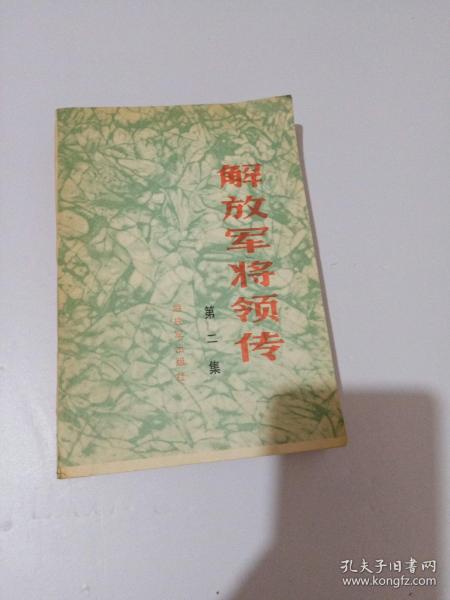 解放军将领传
第二集
解放军出版社
孔夫子旧书网
www.kongfz.com